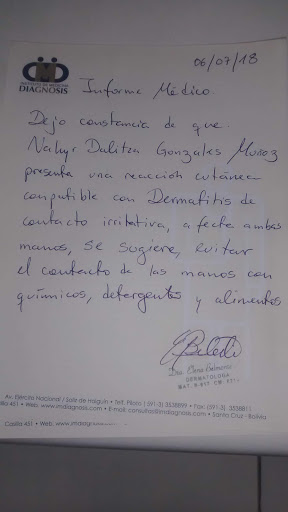 06/07/18
DIAGNOSIS
Informe Médico.
Dejo constancia de que
Nahyr Dalitza Gonzales Muñoz
presenta una reacción cutánea
compatible con Dermatitis de
contacto irritativa, afecta ambas
manos, se sugiere, evitar
el contacto de las manos con
químicos, detergentes y alimentos
Dra.
DERMATOLOGA
Av. Ejército Nacional / Salz de Ibáguin • Telf. Piloto: (591-3) 3538899 • Fax: (591-3) 3538811
lla 451 • Web: www.imdiagnosis.com • E-mail: consultas@imdiagnosis.com • Santa Cruz - Bolivia
Casilla 451 • Web: www.imdiagnosis